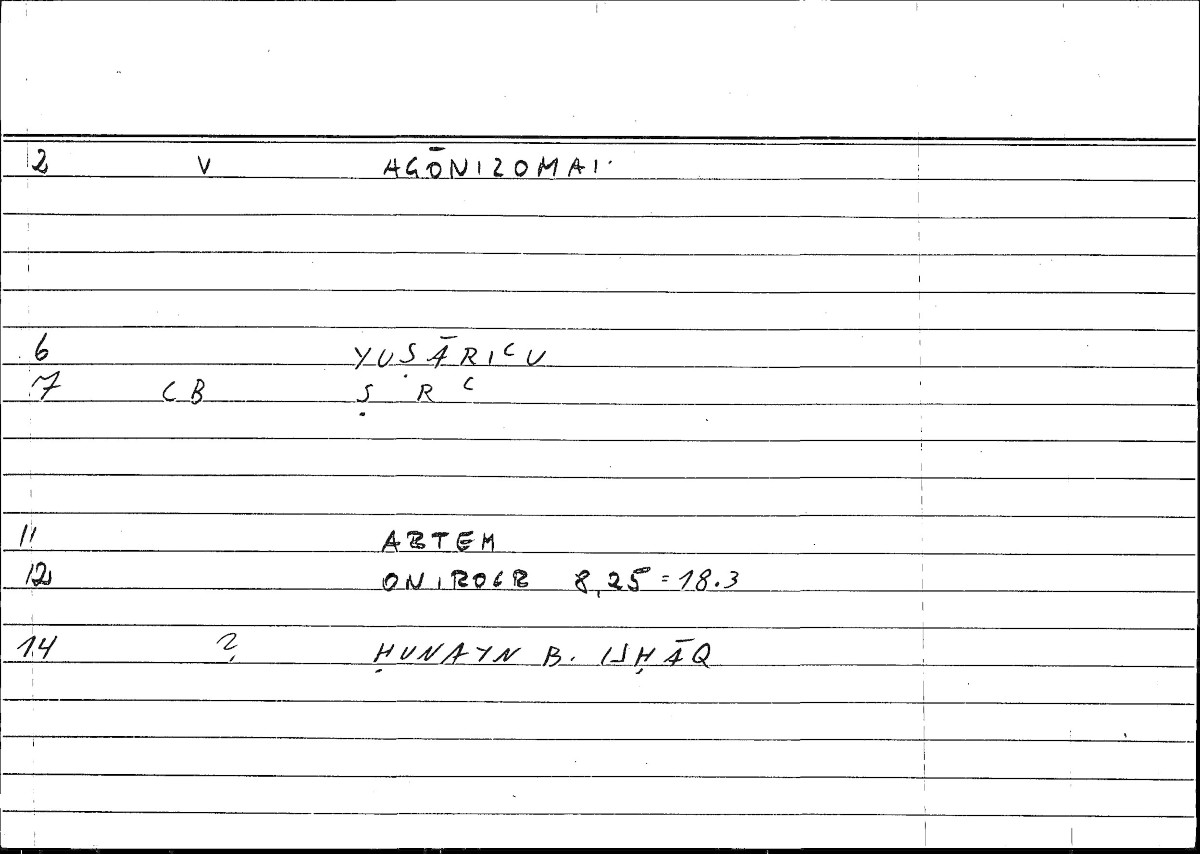 2 V AGŌNIZOMAI
6 YUṢĀRIᶜU
7 CB Ṣ R ᶜ
11 ARTEM
12 ONIROCR 8,25 = 18.3
14 ? ḤUNAYN B. ISḤĀQ